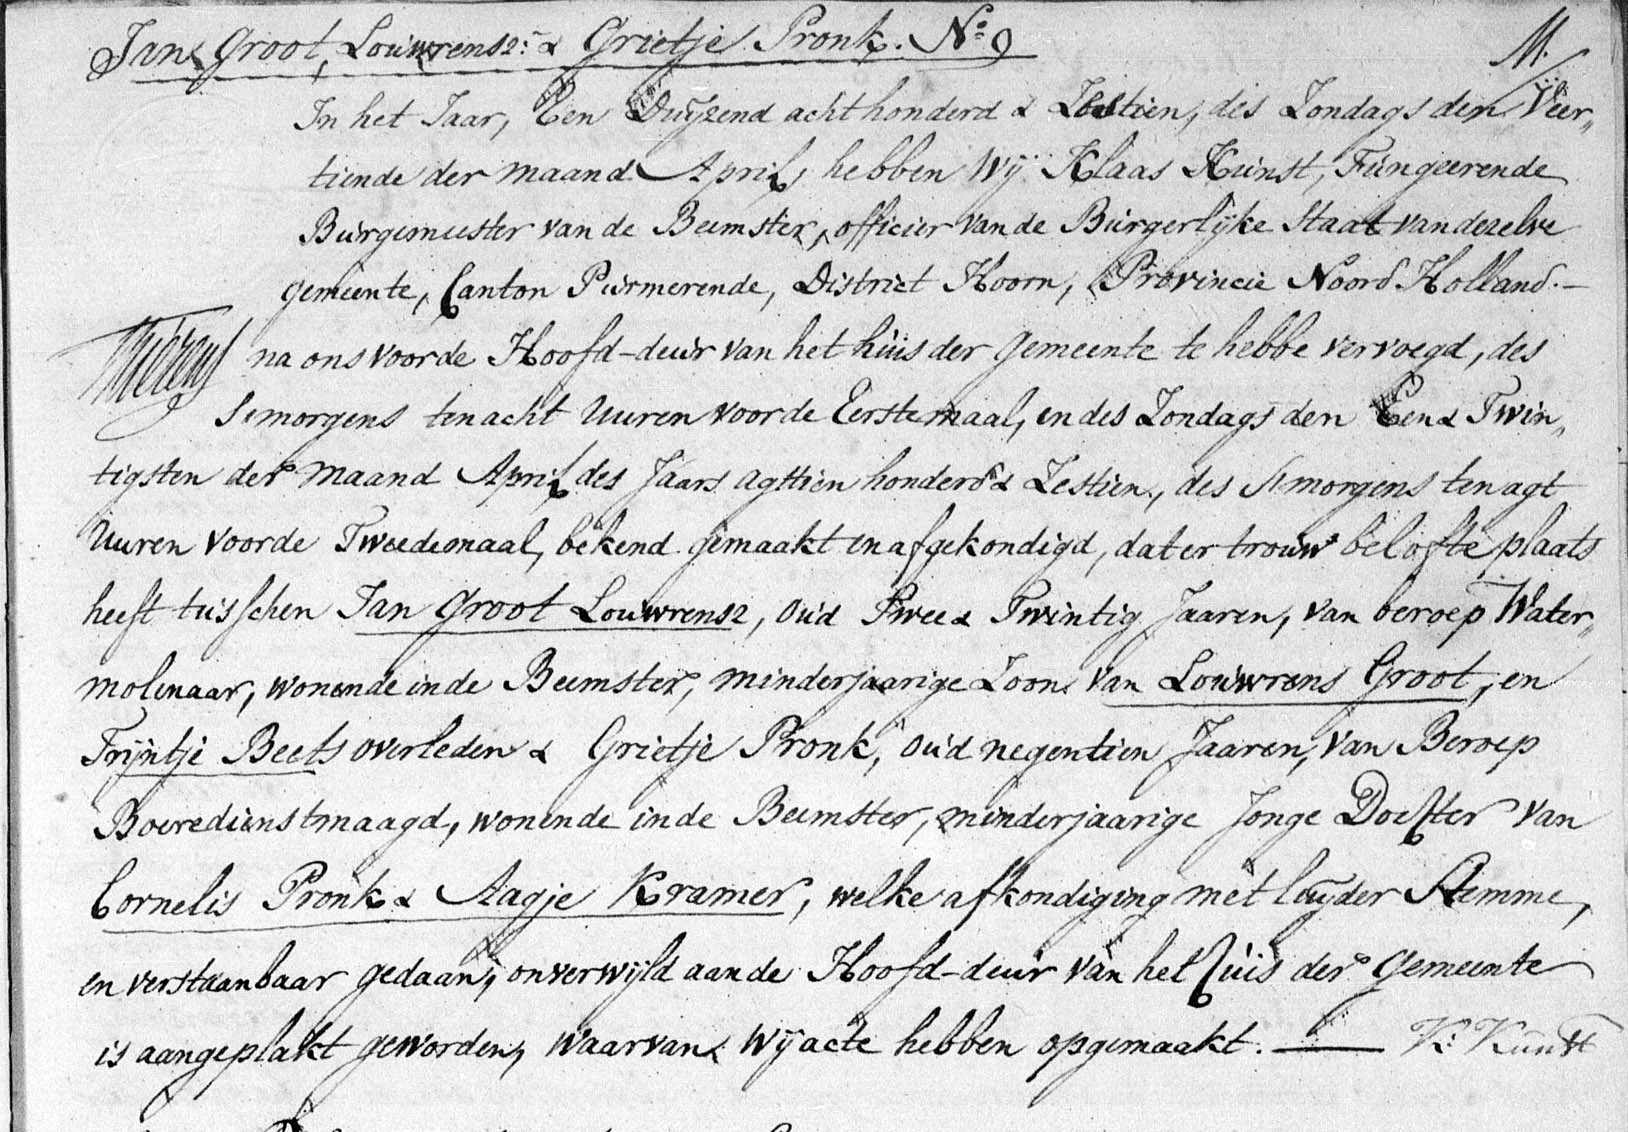 Jan Groot, Louwrensz: & Grietje Pronk. No: 9
In het Jaar, Een Duÿzend acht honderd & Zestien, des Zondags den Veer„
tiende der maand April, hebben Wÿ Klaas Kunst, Fungeerende
Burgemeester van de Beemster, officier van de Burgerlÿke Staat van dezelve
gemeente, Canton Purmerende, District Hoorn, Provincie Noord Holland. —
na ons voor de Hoofd-deur van het huis der gemeente te hebbe vervoegd, des
S'morgens ten acht Uuren voor de Eerstemaal, en des Zondags den Een & Twin„
tigsten der maand April des Jaars agttien honderd & Zestien, des S'morgens ten agt
Uuren voor de Tweedemaal, bekend gemaakt en afgekondigd, dat er trouw belofte plaats
heeft tusschen Jan Groot Louwrensz, oud Twee & Twintig Jaaren, van beroep Water„
molenaar, wonende in de Beemster, minderjaarige Zoon van Louwrens Groot, en
Trÿntje Beets overleden & Grietje Pronk, oud negentien Jaaren, van Beroep
Boeredienstmaagd, wonende in de Beemster, minderjaarige Jonge Dochter van
Cornelis Pronk & Aagje Kramer, welke afkondiging met luÿder Stemme,
en verstaanbaar gedaan, onverwÿld aan de Hoofd-deur van het huis der gemeente
is aangeplakt geworden, waarvan wÿ acte hebben opgemaakt. — K: Kunst